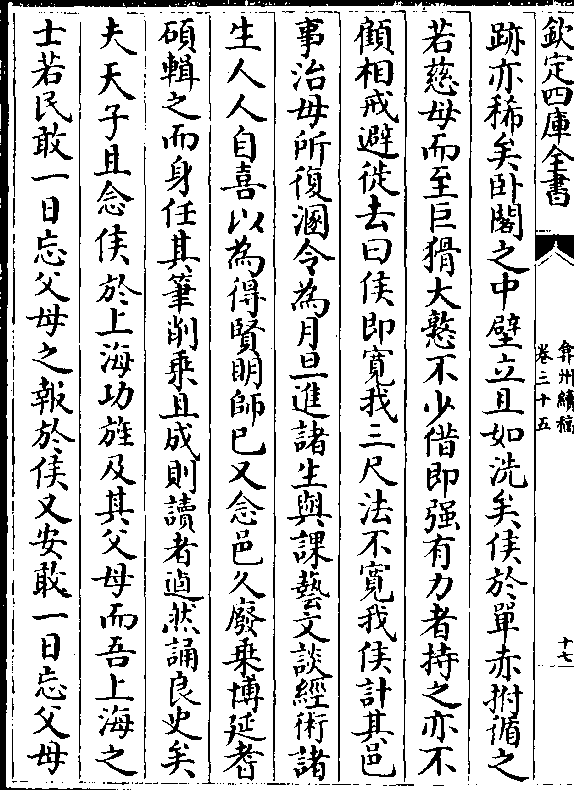 欽定四庫全書
弇州續稿
卷三十五
十七
跡亦稀矣卧閣之中壁立且如洗矣侯於單赤拊循之
若慈母而至巨猾大憝不少借即强有力者持之亦不
顧相戒避徙去曰侯即寛我三尺法不寛我侯計其邑
事治毋所復溷令為月旦進諸生與課藝文談經術諸
生人人自喜以為得賢明師已又念邑久廢乗博延耆
碩輯之而身任其筆削乗且成則讀者逌然誦良史矣
夫天子且念侯於上海功旌及其父母而吾上海之
士若民敢一日忘父母之報於侯又安敢一日忘父母